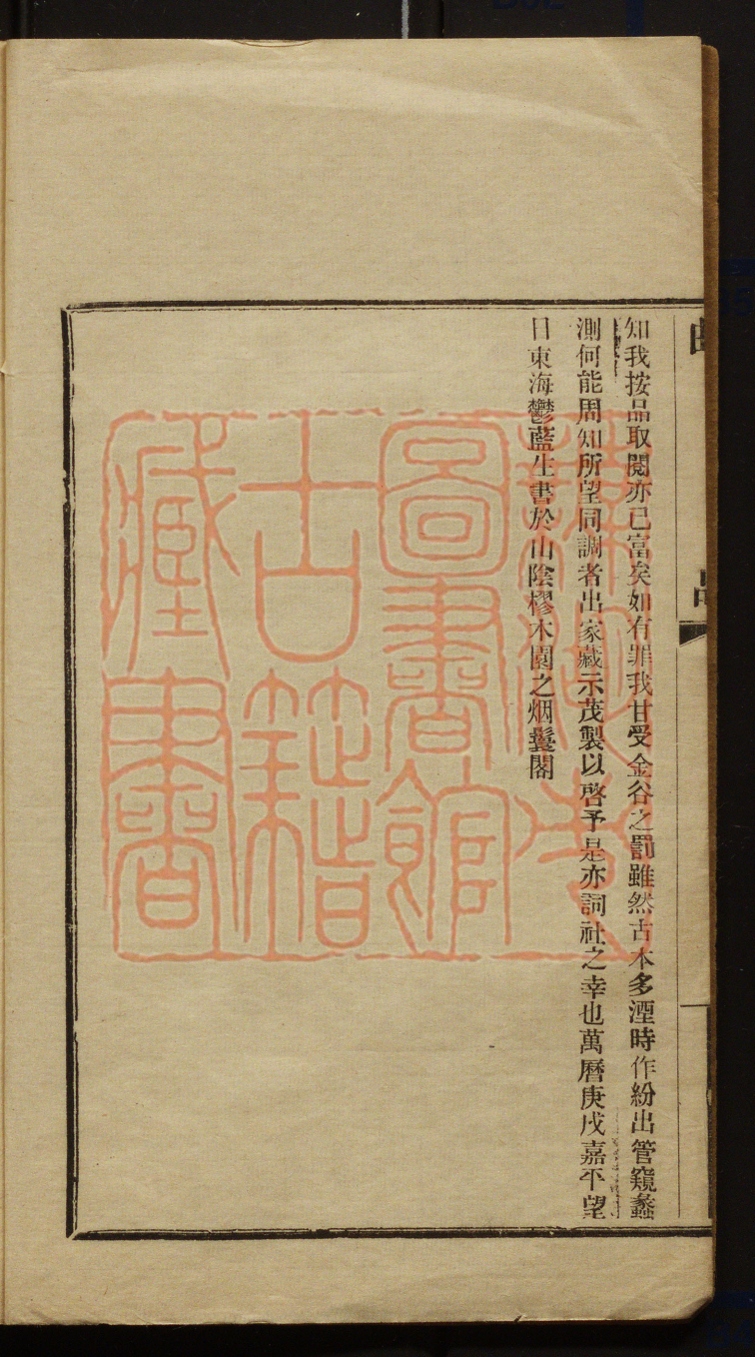 知我按品取閱亦已富矣如有罪我甘受金谷之罰雖然古本多湮時作紛出管窺蠡
測何能周知所望同調者出家藏示茂製以啓予是亦詞社之幸也萬曆庚戌嘉平望
日東海鬱藍生書於山陰樛木園之烟鬟閣
圖書館
古籍
藏書